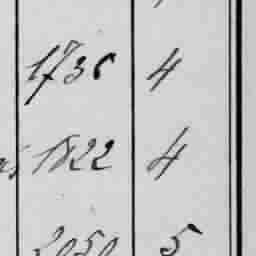 1736 4
1822 4
2050 5